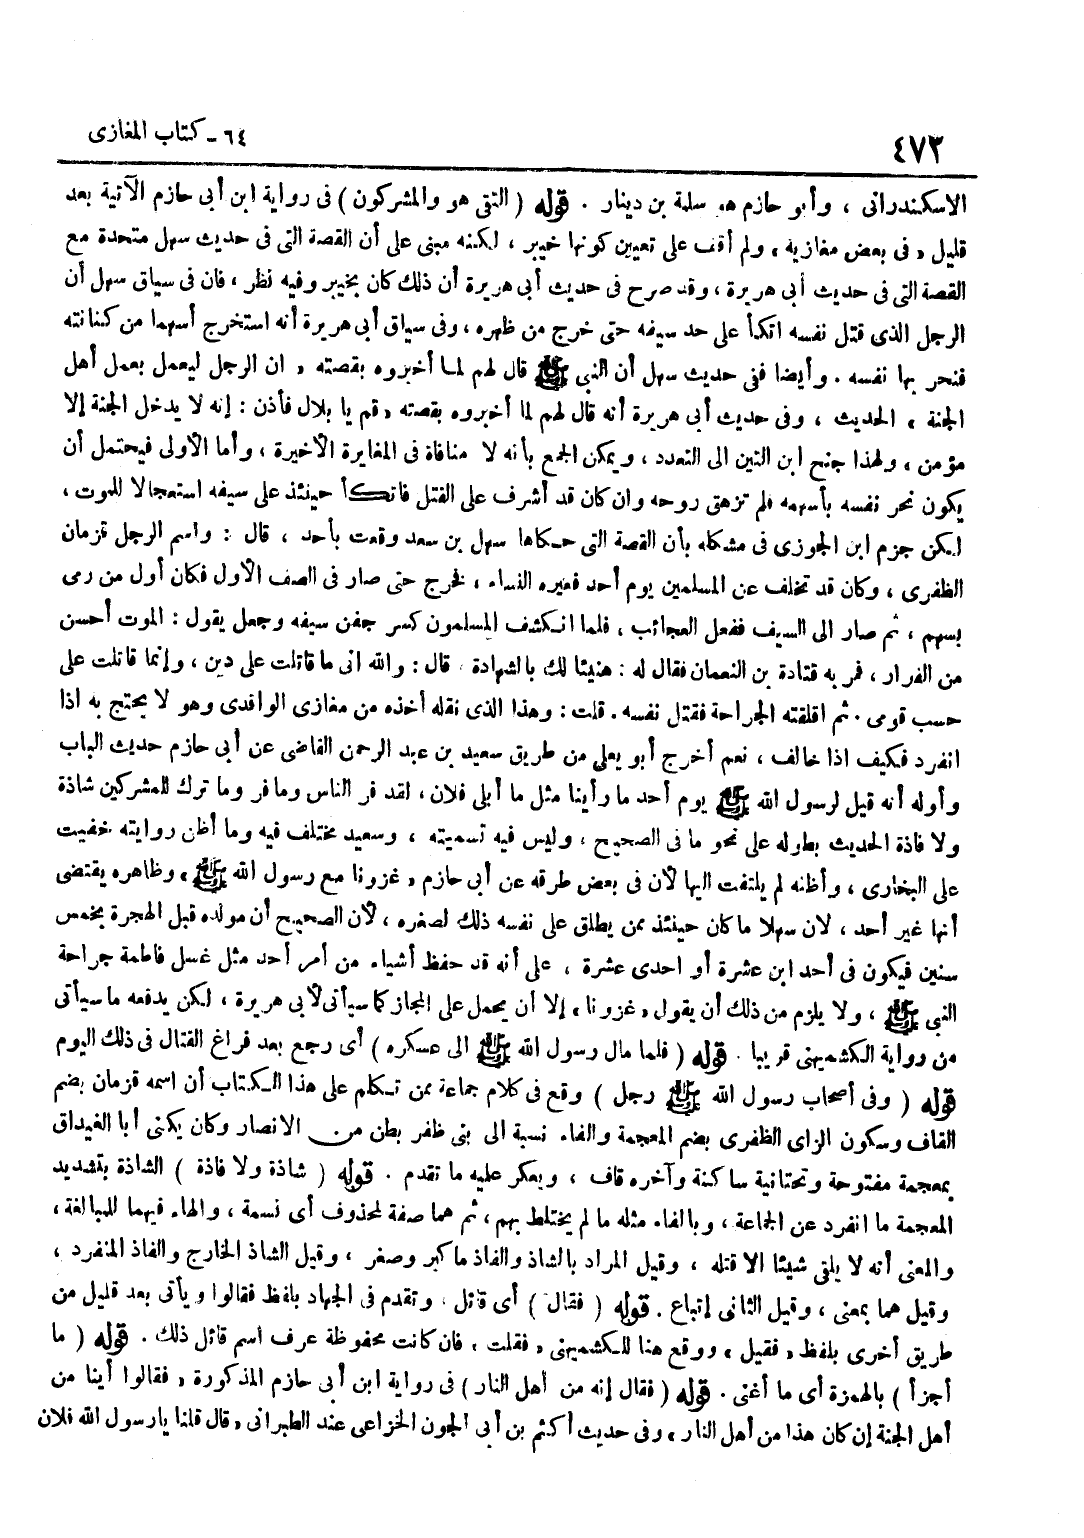 ٤٧٣
٦٤ - كتاب المغازى
الاسكندرانى ، وأبو حازم هو سلمة بن دينار . قوله ( التقى هو والمشركون ) فى رواية ابن أبى حازم الآتية بعد
قليل « فى بعض مغازيه » ولم أقف على تعيين كونها خيبر ، لكنه مبنى على أن القصة التى فى حديث سهل متحدة مع
القصة التى فى حديث أبى هريرة ، وقد صرح فى حديث أبى هريرة أن ذلك كان بخيبر وفيه نظر ، فان فى سياق سهل أن
الرجل الذى قتل نفسه اتكأ على حد سيفه حتى خرج من ظهره ، وفى سياق أبى هريرة أنه استخرج أسهما من كنانته
فنحر بها نفسه . وأيضا ففى حديث سهل أن النبى ﷺ قال لهم لما أخبروه بقصته « ان الرجل ليعمل بعمل أهل
الجنة » الحديث ، وفى حديث أبى هريرة أنه قال لهم لما أخبروه بقصته « قم يا بلال فأذن : إنه لا يدخل الجنة إلا
مؤمن » ولهذا جنح ابن التين الى التعدد ، ويمكن الجمع بأنه لا منافاة فى المغايرة الأخيرة ، وأما الأولى فيحتمل أن
يكون نحر نفسه بأسهمه فلم تزهق روحه وان كان قد أشرف على القتل فاتكأ حينئذ على سيفه استعجالا للموت ،
لكن جزم ابن الجوزى فى مشكله بأن القصة التى حكاها سهل بن سعد وقعت بأحد ، قال : واسم الرجل قزمان
الظفرى ، وكان قد تخلف عن المسلمين يوم أحد فعيره النساء ، فخرج حتى صار فى الصف الأول فكان أول من رمى
بسهم ، ثم صار الى السيف ففعل العجائب ، فلما انكشف المسلمون كسر جفن سيفه وجعل يقول : الموت أحسن
من الفرار ، فمر به قتادة بن النعمان فقال له : هنيئا لك بالشهادة ، قال : والله انى ما قاتلت على دين ، وإنما قاتلت على
حسب قومى . ثم اقلقته الجراحة فقتل نفسه . قلت : وهذا الذى نقله أخذه من مغازى الواقدى وهو لا يحتج به اذا
انفرد فكيف اذا خالف ، نعم أخرج أبو يعلى من طريق سعيد بن عبد الرحمن القاضى عن أبى حازم حديث الباب
وأوله أنه قيل لرسول الله ﷺ يوم أحد ما رأينا مثل ما أبلى فلان ، لقد فر الناس وما فر وما ترك للمشركين شاذة
ولا فاذة الحديث بطوله على نحو ما فى الصحيح ، وليس فيه تسميته ، وسعيد مختلف فيه وما أظن روايته خفيت
على البخارى ، وأظنه لم يلتفت اليها لأن فى بعض طرقه عن أبى حازم « غزونا مع رسول الله ﷺ » وظاهره يقتضى
أنها غير أحد ، لان سهلا ما كان حينئذ ممن يطلق على نفسه ذلك لصغره ، لأن الصحيح أن مولده قبل الهجرة بخمس
سنين فيكون فى أحد ابن عشرة أو احدى عشرة ، على أنه قد حفظ أشياء من أمر أحد مثل غسل فاطمة جراحة
النبى ﷺ ، ولا يلزم من ذلك أن يقول « غزونا » إلا أن يحمل على المجاز كما سيأتى لأبى هريرة ، لكن يدفعه ما سيأتى
من رواية الكشميهنى قريبا . قوله ( فلما مال رسول الله ﷺ الى عسكره ) أى رجع بعد فراغ القتال فى ذلك اليوم
قوله ( وفى أصحاب رسول الله ﷺ رجل ) وقع فى كلام جماعة ممن تكلم على هذا الكتاب أن اسمه قزمان بضم
القاف وسكون الزاى الظفرى بضم المعجمة والفاء نسبة الى بنى ظفر بطن من الانصار وكان يكنى أبا الغيداق
بمعجمة مفتوحة وتحتانية ساكنة وآخره قاف ، ويعكر عليه ما تقدم . قوله ( شاذة ولا فاذة ) الشاذة بتشديد
المعجمة ما انفرد عن الجماعة ، وبالفاء مثله ما لم يختلط بهم ، ثم هما صفة لمحذوف أى نسمة ، والهاء فيهما للمبالغة ،
والمعنى أنه لا يلقى شيئا الا قتله ، وقيل المراد بالشاذ والفاذ ما كبر وصغر ، وقيل الشاذ الخارج والفاذ المنفرد ،
وقيل هما بمعنى ، وقيل الثانى إتباع . قوله ( فقال ) أى قائل ، وتقدم فى الجهاد بلفظ فقالوا ويأتى بعد قليل من
طريق أخرى بلفظ « فقيل » ووقع هنا للكشميهنى « فقلت » فان كانت محفوظة عرف اسم قائل ذلك . قوله ( ما
أجزأ ) بالهمزة أى ما أغنى . قوله ( فقال إنه من أهل النار ) فى رواية ابن أبى حازم المذكورة « فقالوا أينا من
أهل الجنة إن كان هذا من أهل النار » وفى حديث أكثم بن أبى الجون الخزاعى عند الطبرانى « قال قلنا يا رسول الله فلان